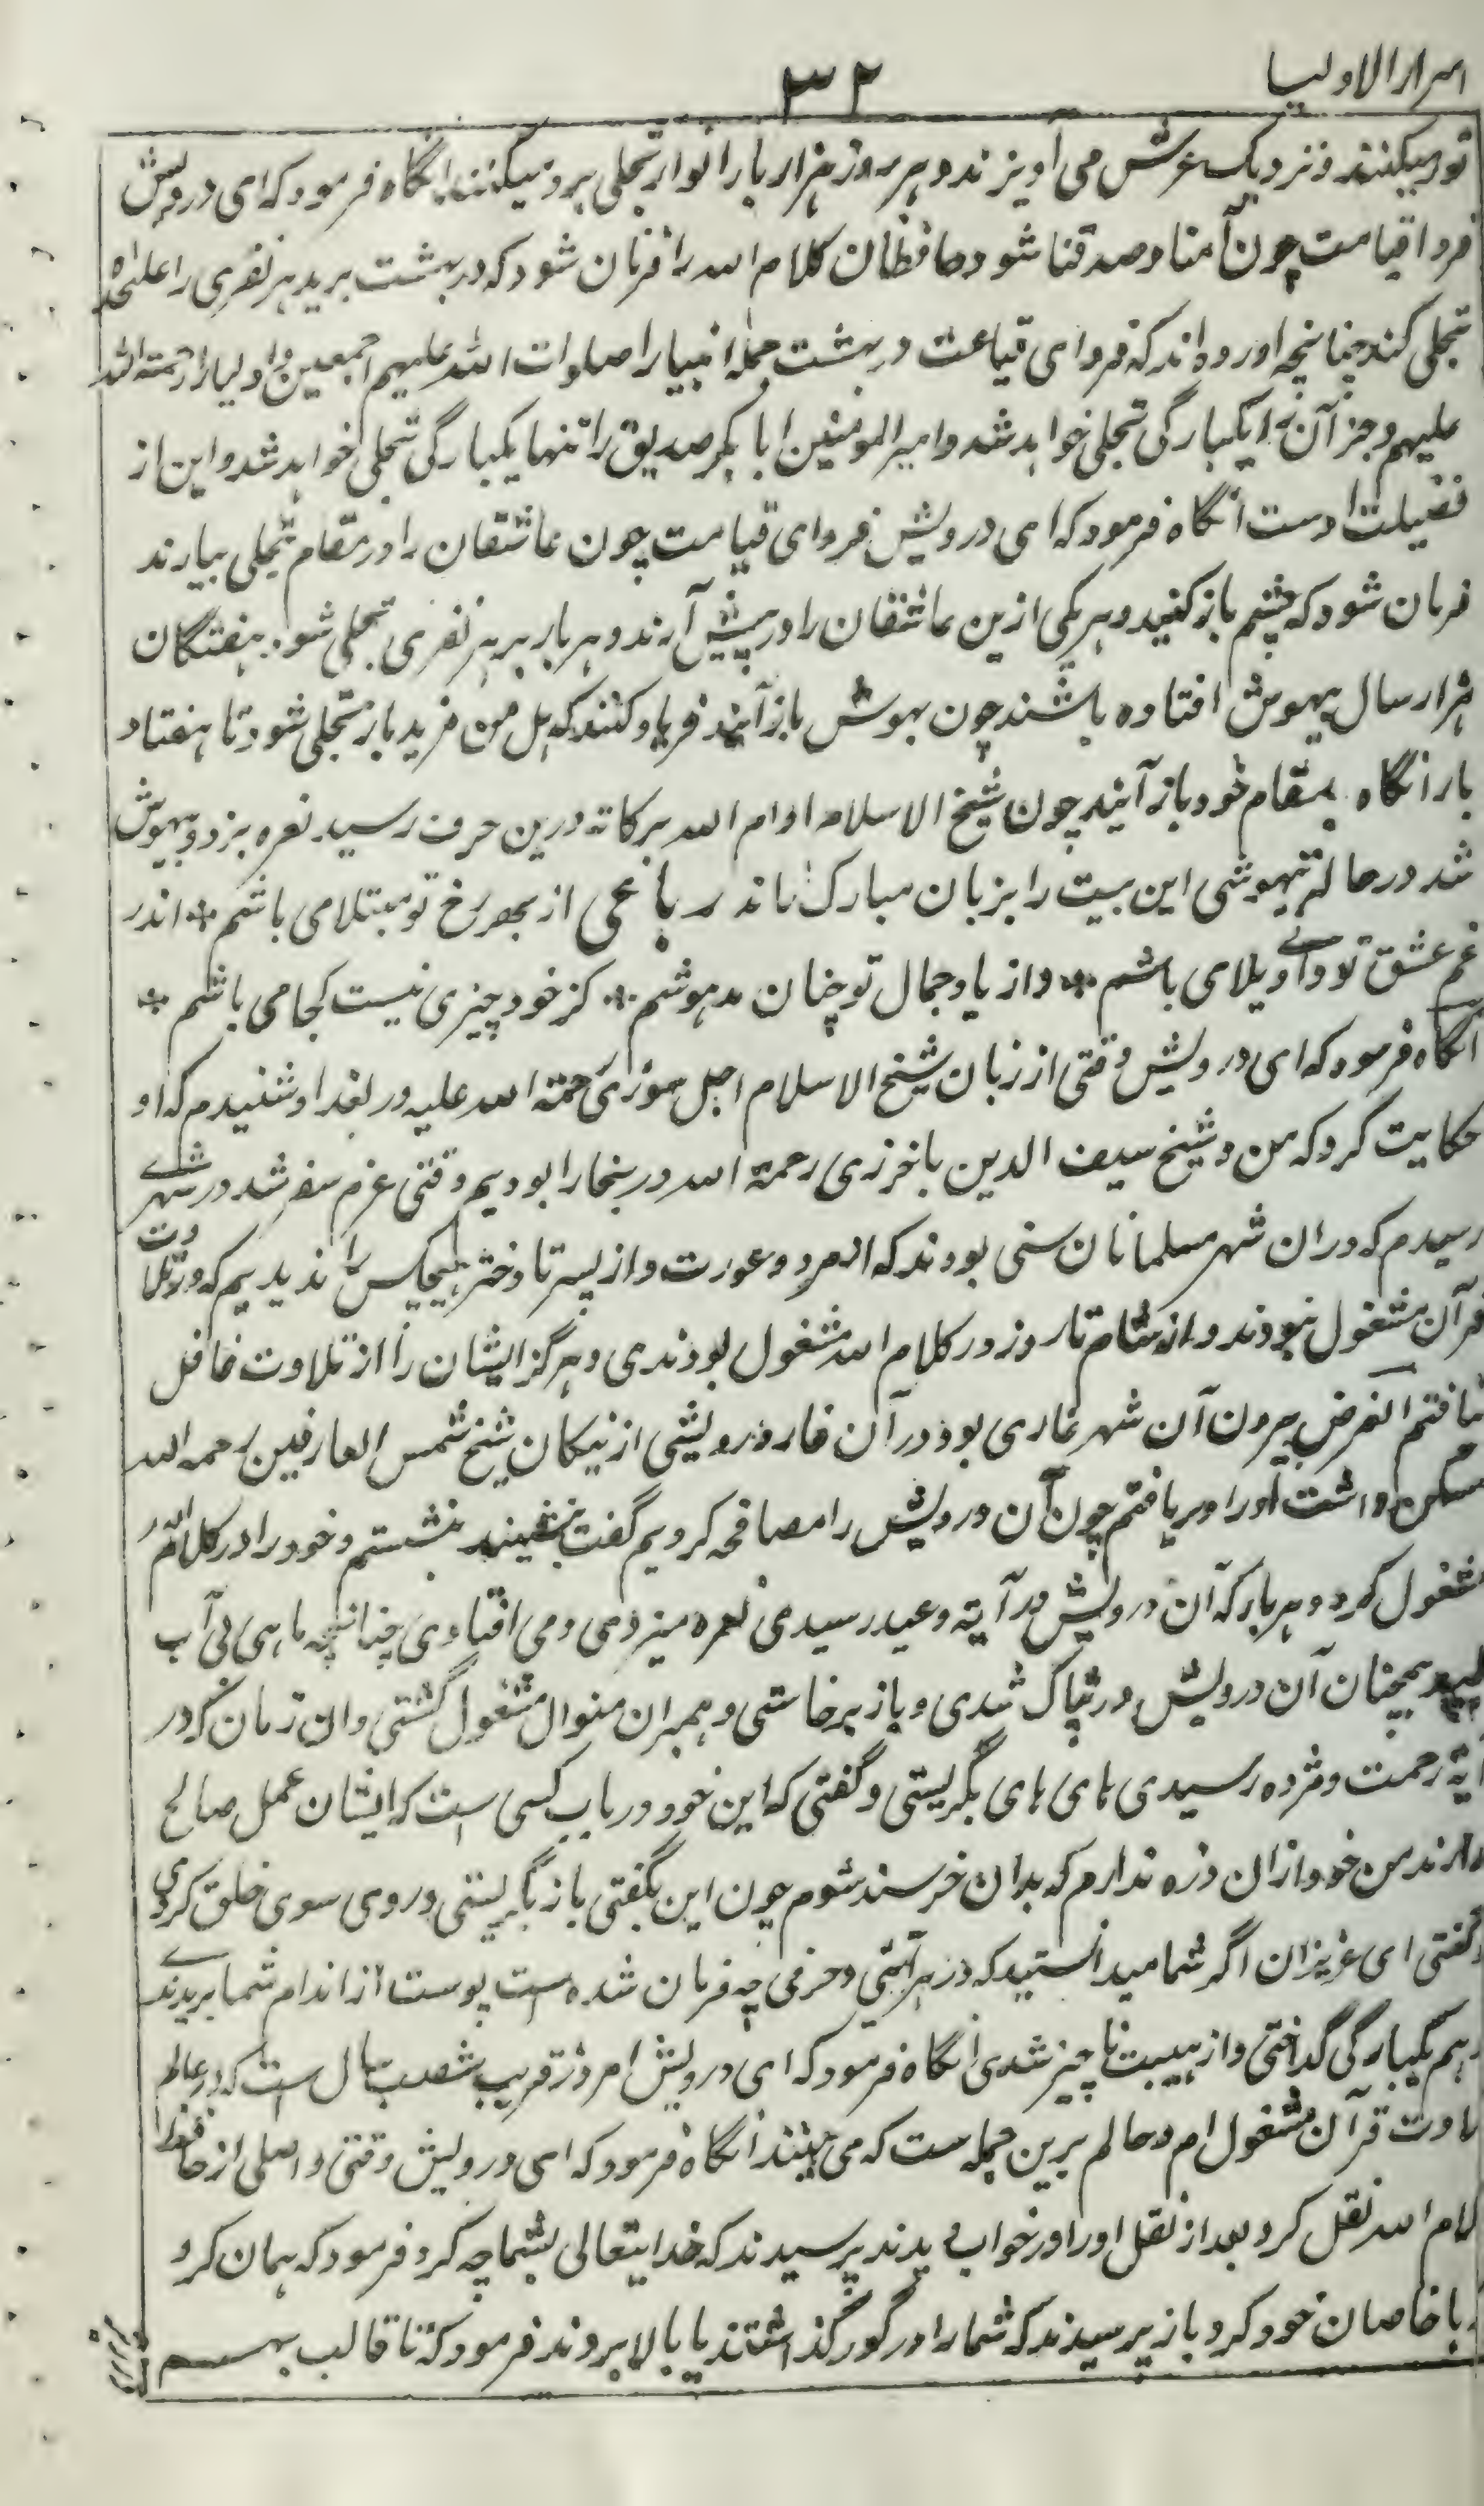 اسرار الاولیا
۳۲
نور میکنند و نزدیک عرش می آویزند و هر روز هزار بار انوار تجلی برو میکنند انگاه فرمود که ای درویش
فردا قیامت چون آمنا و صدقنا شود حافظان کلام الله را فرمان شود که در بهشت برید هر نفری را علنحده
تجلی کند چنانچه آورده اند که فردای قیامت در بهشت جمله انبیا را صلوات الله علیهم اجمعین و اولیا را رحمة الله
علیهم و جز آن را یکبارگی تجلی خواهد شد و امیر المومنین ابابکر صدیق را تنها یکبارگی تجلی خواهد شد و این از
فضیلت اوست انگاه فرمود که ای درویش فردای قیامت چون عاشقان را در مقام تجلی بیارند
فرمان شود که چشم باز کنید و هر یکی ازین عاشقان را در پیش آرند و هر بار بر هر نفری تجلی شود هفتگان
هزار سال بیهوش افتاده باشند چون بهوش باز آیند فریاد کنند که هل من مزید باز تجلی شود تا هفتاد
بار انگاه بمقام خود باز آیند چون شیخ الاسلام ادام الله برکاته درین حرف رسید نعره بزد و بیهوش
شد در حالت بیهوشی این بیت را بزبان مبارک راند رباعی از بهر رخ تو مبتلا می باشم * اندر
غم عشق تو وای ویلا می باشم * و از یاد جمال تو چنان مدهوشم * کز خود چیزی نیست کجا می باشم *
آنگاه فرمود که ای درویش وقتی از زبان شیخ الاسلام اجل سوزی رحمة الله علیه در بغداد شنیدم که او
حکایت کرد که من و شیخ سیف الدین باخرزی رحمة الله در بخارا بودیم وقتی عزم سفر شد در شهرے
رسیدم که دران شهر مسلمانان سنی بودند که از مرد و عورت و از پسر تا دختر هیچکس را ندیدیم که در تلاوت
قرآن مشغول نبودند و از شام تا روز در کلام الله مشغول بودندی و هرگز ایشان را از تلاوت غافل
نیافتم الغرض بیرون آن شهر غاری بود در آن غار درویشی از نیکان شیخ شمس العارفین رحمه الله
مسکن داشت او را دریافتم چون آن درویش را مصافحه کردیم گفت بنشینید بنشستم و خود را در کلام الله
مشغول کرد و هر بار که آن درویش در آیته وعید رسیدی نعره میزدی و می افتادی چنانچه ماهی بی آب
همچنان آن درویش در تپاک شدی و باز برخاستی و همبران منوال مشغول گشتی و ان زمان که در
آیة رحمت و مژده رسیدی های های بگریستی و گفتی که این خود در باب کسی است که ایشان عمل صالح
دارند من خود ازان ذره ندارم که بدان خرسند شوم چون این بگفتی باز بگریستی و روی سوی خلق کردی
و گفتی ای عزیزان اگر شما میدانستید که در هر آیتی و حرفی چه فرمان شده است پوست از اندام شما بریدندے
و هم یکبارگی گداختی و از هیبت ناچیز شدی انگاه فرمود که ای درویش امروز قریب شصت سال است که در عالم
تلاوت قرآن مشغول ام و حالم برین جمله ست که می بینند انگاه فرمود که ای درویش وقتی واصلی از حافظ
کلام الله نقل کرد بعد از نقل او را در خواب دیدند پرسیدند که خدایتعالی بشما چه کرد فرمود که همان کرد
که با خاصان خود کرد باز پرسیدند که شما را در گور گذاشتند یا بالا بردند فرمود که تا قالب بهم